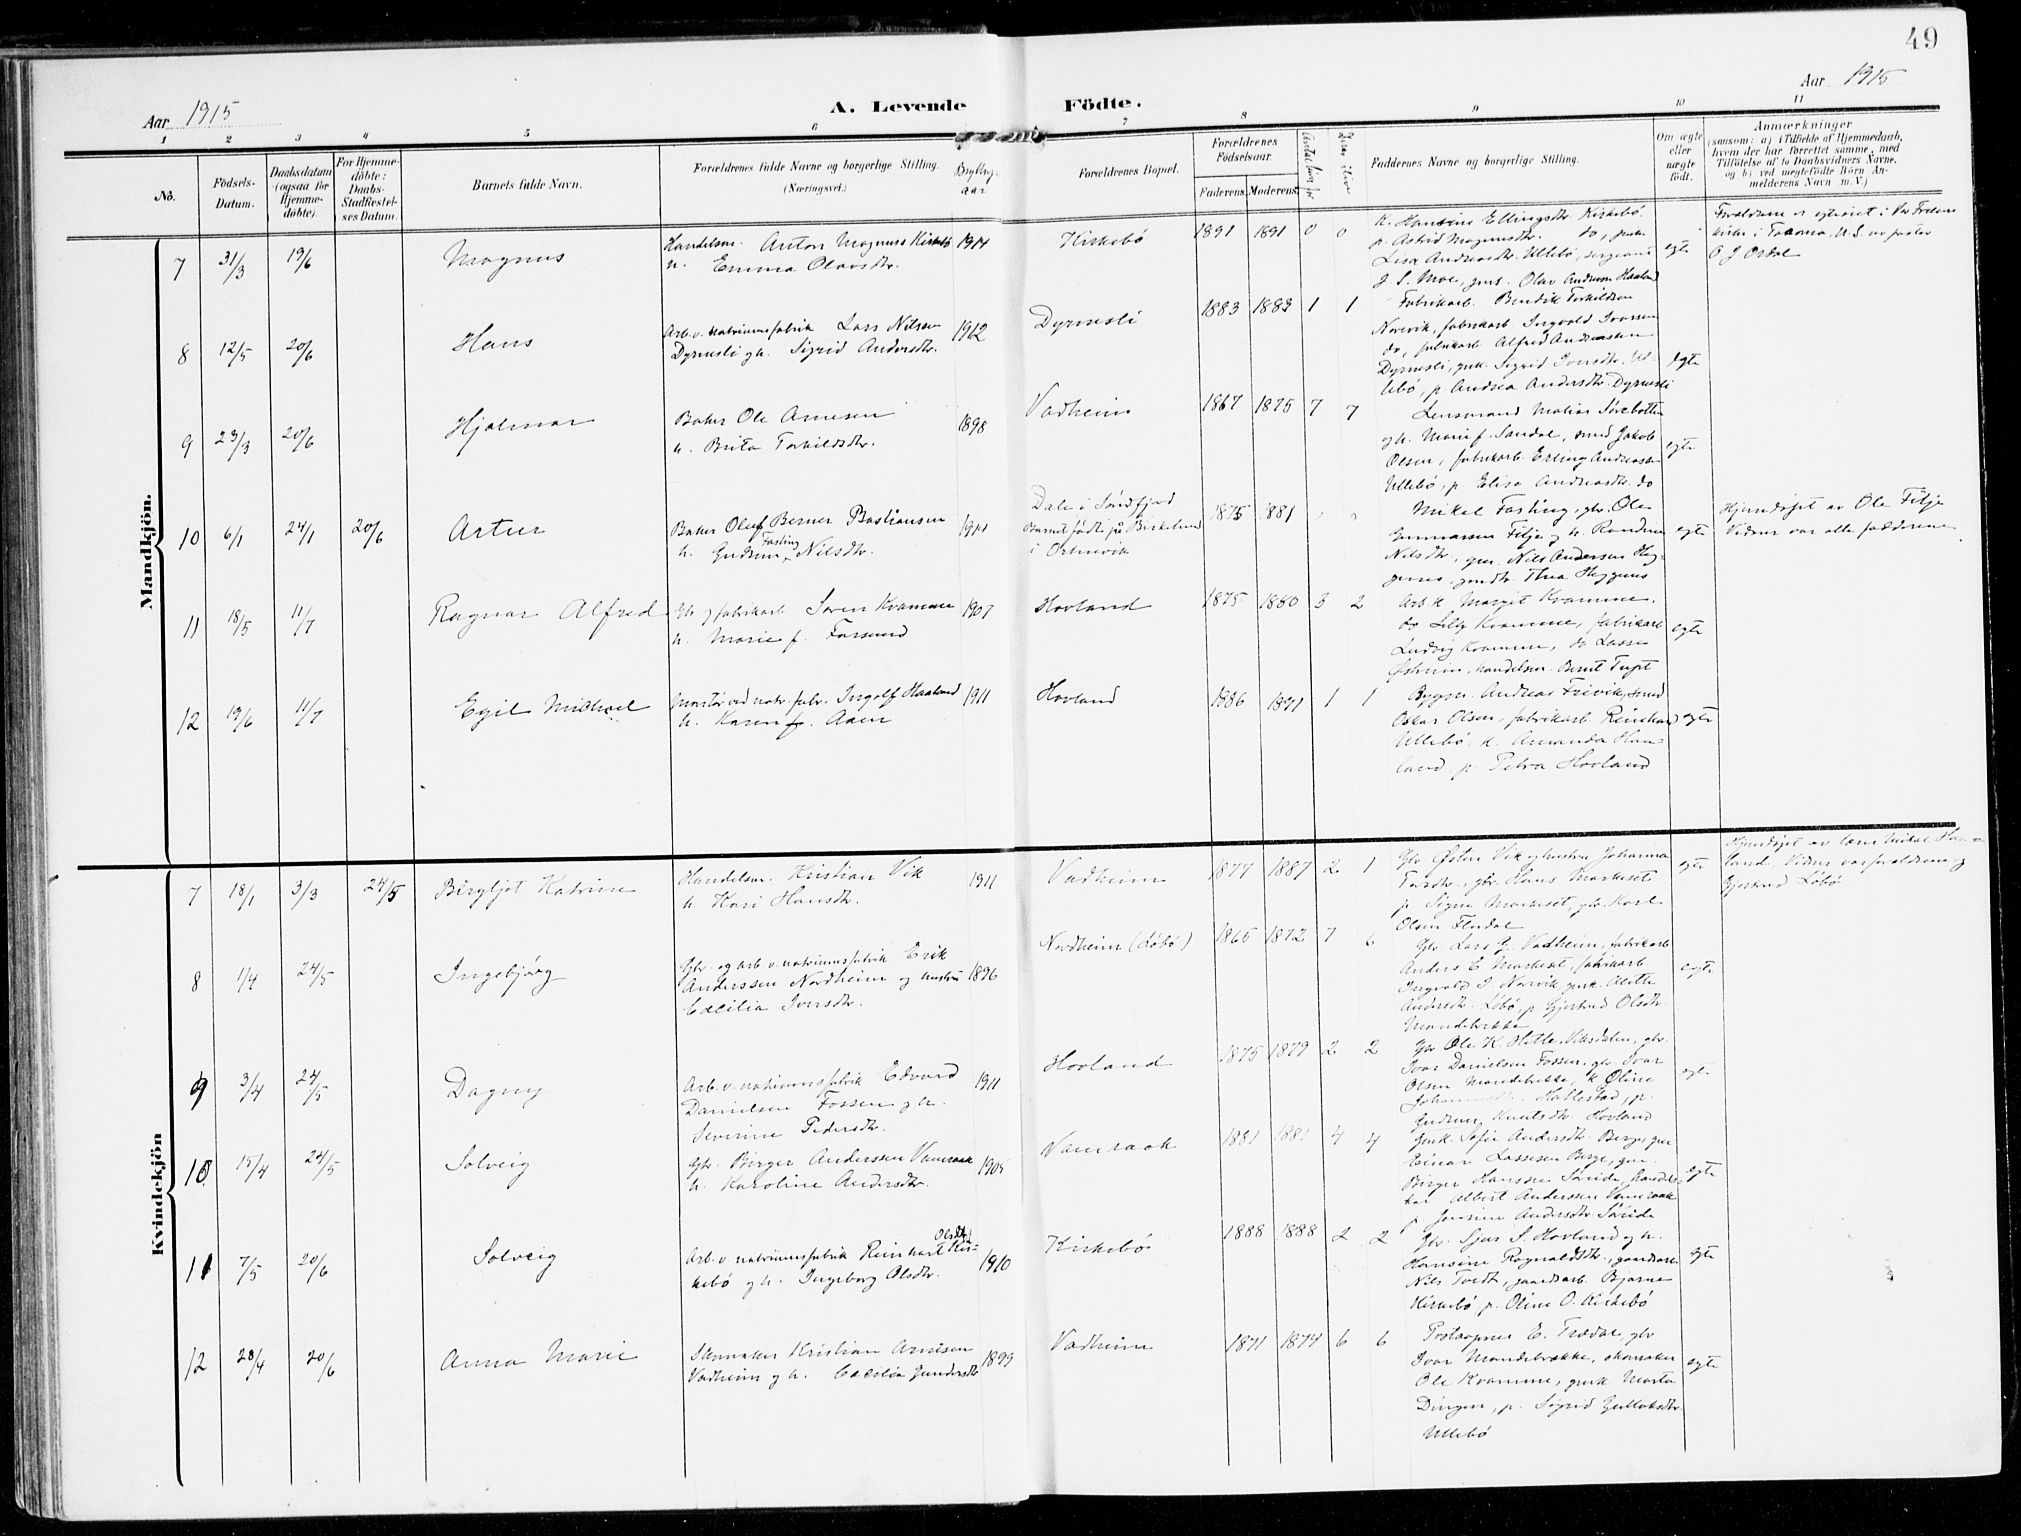 49
Aar 1915
A. Levende Födte.
Aar 1915
1 2 3 4 5 6 7 8 9 10 11
No.
Födsels-Datum.
Daabsdatum (ogsaa for Hjemme-döbte).
For Hjemme-döbte: Daabs-Stadfæstel-ses Datum.
Barnets fulde Navn.
Forældrenes fulde Navne og borgerlige Stilling.
(Næringsvei.)
Bryllups aar
Forældrenes Bopæl.
Forældrenes Födselsaar.
Faderens. Moderens.
Faddernes Navne og borgerlige Stilling.
Om ægte eller uægte födt.
Anmærkninger
(saasom: a) i Tilfælde af Hjemmedaab,
hvem der har forrettet samme, med
Tilföielse af to Daabsvidners Navne.
og b) ved uegtefödte Börn An-
melderens Navn m. V.)
Mandkjön.
7 31/3 19/6 Magnus
Handelsm. Anton Magnus Kirkebö 1914
h. Emma Olavsdtr.
Kirkebö 1891 1891 0 0
k. Hansine Ellingsdtr. Kirkebö
p. Astrid Magnusdtr. do,
Lisa Andreasdtr. Ullebö, sergeant
J. S. Moe, gms. Olav Andreas Haaland
egte
kirke i Tacoma, U.S. av pastor
O. J. Ordal
8 12/5 20/6 Hans
Arb. v. natriumsfabrik Lars Nilsen 1912
Dyrnesli og h. Sigrid Andersdtr.
Dyrnesli 1883 1883 1 1
Fabrikarb. Bendik Torkildsen
Norevik, fabrikarb. Ingvald Ivarsen
do, fabrikarb. Alfred Andreassen
Dyrnesli, gmk. Sigrid Iversdtr. Ul-
lebö, p. Andrea Andersdtr. Dyrnesli
egte
9 23/3 20/6 Hjalmar
Baker Ole Arnesen 1898
h. Brita Torkildsdtr.
Vadheim 1867 1875 7 7
Lensmand Matias Sörebotten
og h. Marie f. Sandal, smed Jakob
Olsen, fabrikarb. Erling Andreassen
Ullebö, p. Elisa Andreasdtr. do
egte
10 6/1 24/1 20/6 Artur
Baker Oluf Berner Bastiansen 1911
h. Gudrun Fasting Nilsdtr.
Dale i Söndfjord
Barnet födt på Birkelund
i Ortnevik
1875 1881
Mikal Fasting, gbr. Ole
Gunnarsen Filje og h. Randine
Nilsdtr., gm. Nils Andersen Heg-
genes, gmdtr. Thea Heggenes
egte
Hjemdöpt av Ole Filje
Vidner var alle fadderne
11 18/5 11/7 Ragnar Alfred
Gbr. og fabrikarb. Søren Kvamme 1907
h. Marie f. Forsund
Hovland 1875 1880 3 2
Arb. k. Margit Kvamme,
do Lilly Kvamme, fabrikarb
Ludvig Kvamme, do Lasse
Östreim, handelsm. Bernt Tupt
egte
12 19/6 11/7 Egil Michael
Montör ved natr. fabr. Ingolf Haaland 1911
h. Karen f. Aaen
Hovland 1886 1891 1 1
Byggm. Andreas Frivik, smed
Oskar Olsen, fabrikarb Reinhard
Ullebö, k. Amanda Haa-
land p. Petra Hovland
egte
Kvindekjön
7 18/1 3/3 24/5 Bergljot Katrine
Handelsm. Kristian Vik 1911
h. Kari Hansdtr.
Vadheim 1877 1887 2 1
Gbr. Östen Vik og hustru Johanna
Tordtr., gbr. Hans Maribset
p. Signe, gbr. Karl
Olsen Fledal
egte
Hjemdöpt av
land. Vidner var forældrene og
Gjertrud Löbö
8 1/4 24/5 Ingebjörg
Gbr. og arb. v. natriumsfabrik Erik
Anderssen Nordheim og hustru 1896
Cæcilia Iversdtr.
Nordheim (Löbö) 1865 1872 7 6
Gbr. Lars G. Vadheim, fabrikarb
Anders E., fabrikarb
Ingvald I. Norvik gmk. Alette
Andersdtr. Löbö, p. Gjertrud Olsdtr.
Mandebrekke
egte
9 3/4 24/5 Dagny
Arb. v. natriumsfabrik Edvard 1911
Danielsen Fossen og h.
Severine Pedersdtr.
Hovland 1875 1879 2 2
Gbr Ole K. Hetle, gbr.
Ivar Danielsen Fossen, gbr. Ivar
Olsen Mandebrekke, k. Oline
Hallestad, p.
Gudrun Knutsdtr. Hovland
egte
10 15/4 24/5 Solveig
Gbr. Birger Anderssen Vamraak 1905
h. Karoline Andersdtr.
Vamraak 1881 1881 4 4
Gmk. Sofie Andersdtr. Berge, gm
Einar Lassesen Berge, gm.
Birger Hanssen Söreide, handels-
Albert Anderssen Vamraak
p. Jensine Andersdtr. Söreide
egte
11 7/5 20/6 Solveig
Arb. v. natriumsfabrik Reinhart Olsen Kir- 1910
kebö og h. Ingeborg Olsdtr.
Kirkebö 1888 1888 2 2
Gbr. Sjur S. Hovland og h.
Hansine Rognaldsdtr., gaardsarb.
Nils Tordt, gaardsarb. Bjarne
Kirkebö p. Oline O. Kirkebö
egte
12 28/4 20/6 Anna Marie
Skomaker Kristian Arnesen 1899
Vadheim og h. Cæcilia Gundersdtr.
Vadheim 1871 1874 6 6
Postaapner E. Trædal, gbr
Ivar Mandebrekke, skomaker
Ole Kvamme, gmk. Marta
Dingen, p. Sigrid Gulleksdtr.
Ullebö
egte